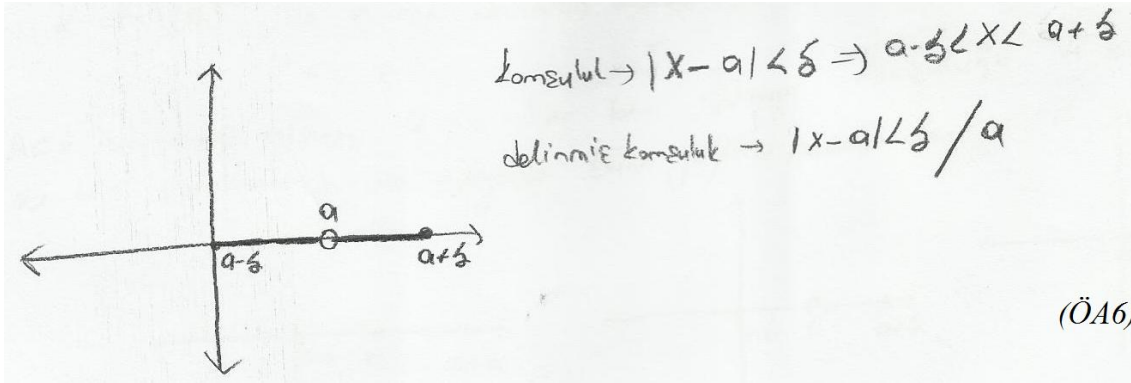 komşuluk → |x-a|<δ ⇒ a-δ<x<a+δ
delinmiş komşuluk → |x-a|<δ / a
a
a-δ
a+δ
(ÖA6)